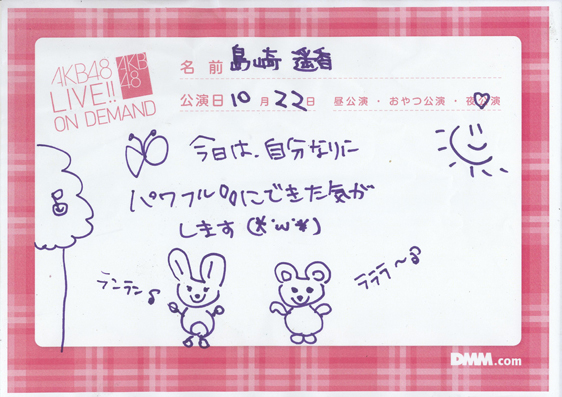 AKB48
LIVE!!
ON DEMAND
AKB
48
名 前 島崎 遥香
公演日 10 月 22 日 昼公演 ・ おやつ公演 ・ 夜公演
今日は、自分なりに
パワフル
にできた気が
します(*'ω'*)
ランラン♪
ラララ〜♪
DMM.com